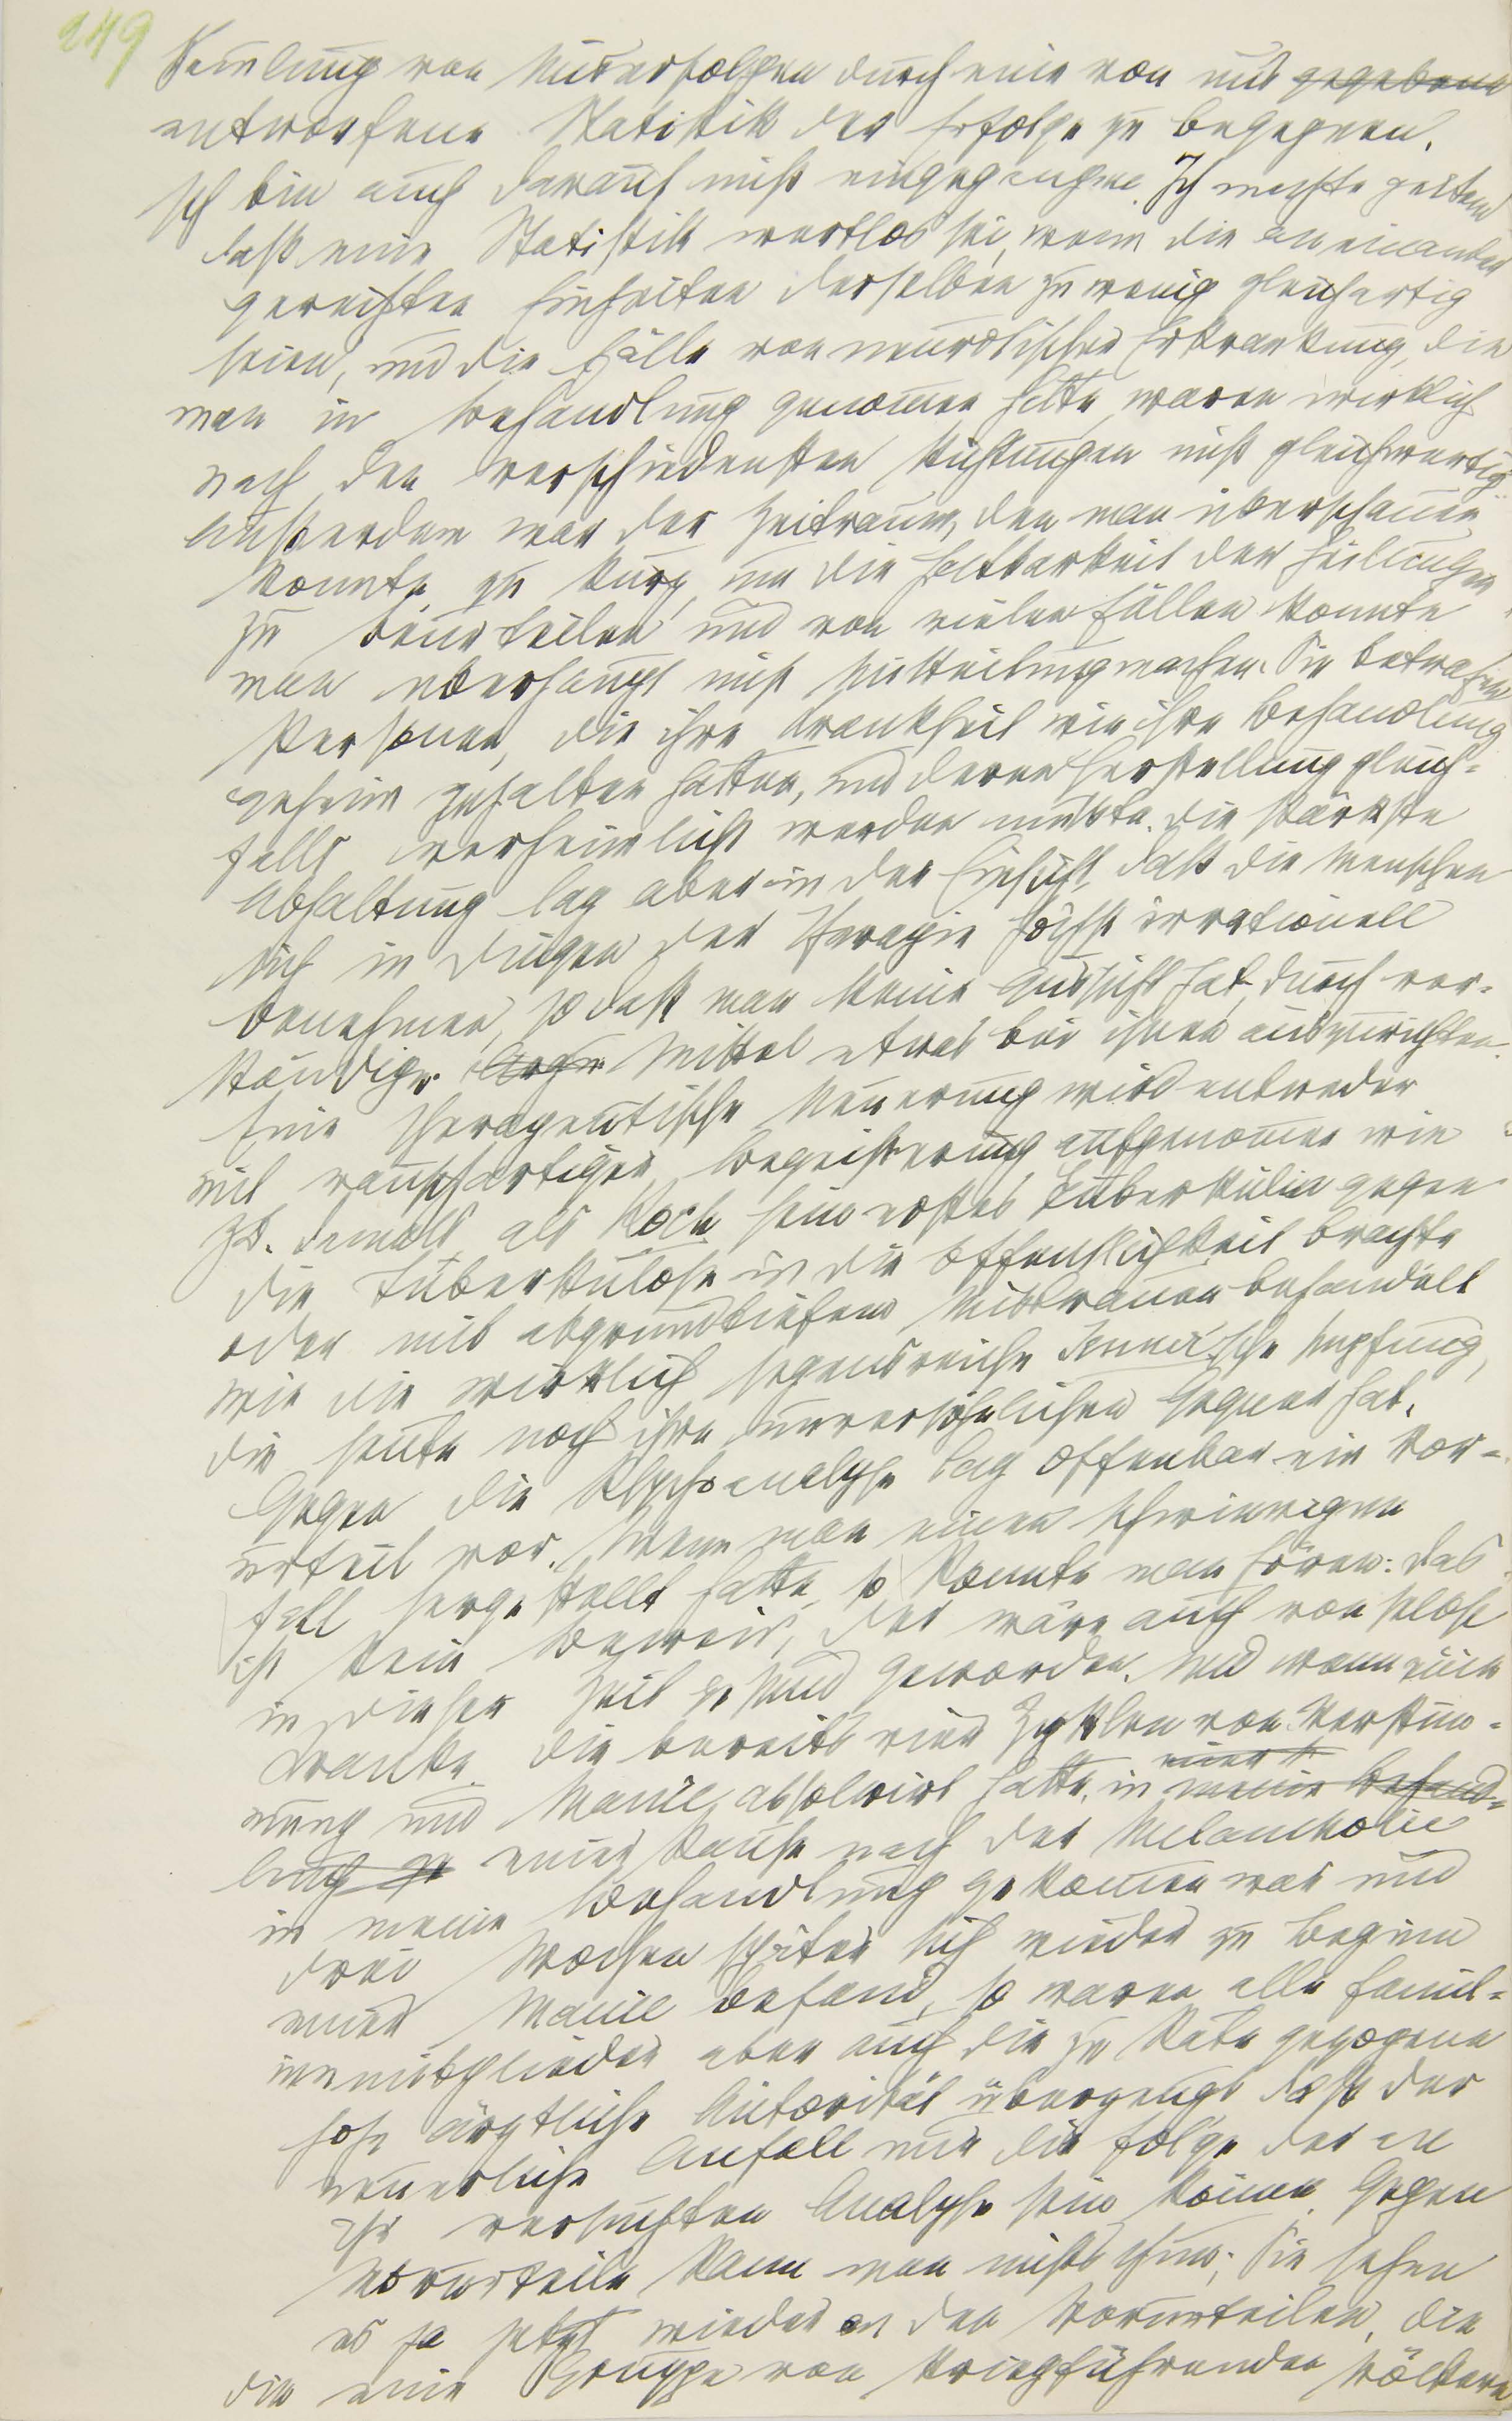 249
Samlung von Misserfolgen durch eine von uns gegebene
entworfene Statistik der Erfolge zu begegnen.
Ich bin auch darauf nicht eingegangen. Ich machte geltend
daß eine Statistik wertlos sei, wenn die aneinander
gereihten Einheiten derselben zu wenig gleichartig
seien, und die Fälle von neurotischer Erkrankung, die
man in Behandlung genomen hatte waren wirklich
nach den verschiedensten Richtungen nicht gleichwertig.
Außerdem war der Zeitraum, den man überschauen
konnte zu kurz, um die Haltbarkeit der Heilungen
zu beurteilen und von vielen Fällen konnte
man überhaupt nicht Mitteilung machen. Sie betrafen
Personen, die ihre Krankheit wie ihre Behandlung
geheim gehalten hatten, und deren Herstellung gleich-
falls verheimlicht werden mußte. Die stärkste
Abhaltung lag aber in der Einsicht, daß die Menschen
sich in Dingen der Therapie höchst irrationell
benehmen, so daß man keine Aussicht hat, durch ver-
ständige Mittel etwas bei ihnen auszurichten.
Eine therapeutische Neuerung wird entweder
mit rauschartiger Begeisterung aufgenomen wie
zB. damals als Koch sein erstes Tuberkulin gegen
die Tuberkulose in die Öffentlichkeit brachte
oder mit abgrundtiefem Mißtrauen behandelt
wie die wirklich segensreiche Jenner'sche Impfung,
die heute noch ihre unversöhnlichen Gegner hat.
Gegen die Psychoanalyse lag offenbar ein Vor-
urteil vor. Wenn man einen schwierigen
Fall hergestellt hatte, so konnte man hören: Das
ist kein Beweis, der wäre auch von selbst
in dieser Zeit gesund geworden. Und wenn eine
Kranke die bereits vier Zyklen von Verstim-
mung und Manie absolvirt hatte, in einer meine Behand-
lung ge einer Pause nach der Melancholie
in meine Behandlung gekomen war und
drei Wochen später sich wieder zu Beginn
einer Manie befand, so waren alle Famil-
ienmitglieder aber auch die zu Rate gezogene
hohe ärztliche Autorität überzeugt daß der
neuerliche Anfall nur die Folge der an
ihr versuchten Analyse sein könne. Gegen
Vorurteile kann man nichts thun; Sie sehen
es ja jetzt wieder an den Vorurteilen, die
die eine Gruppe von kriegführenden Völkern